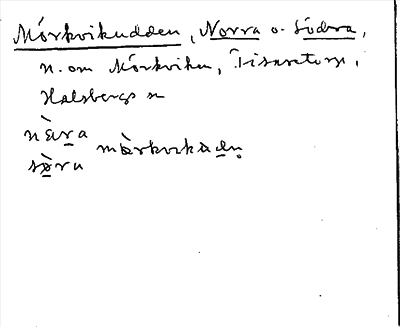 Mörkvikudden, Norra o. Södra,
n. om Mörkviken, Tisaretorp,
Halsbergs sn
nòra
söra mörkvikadn.